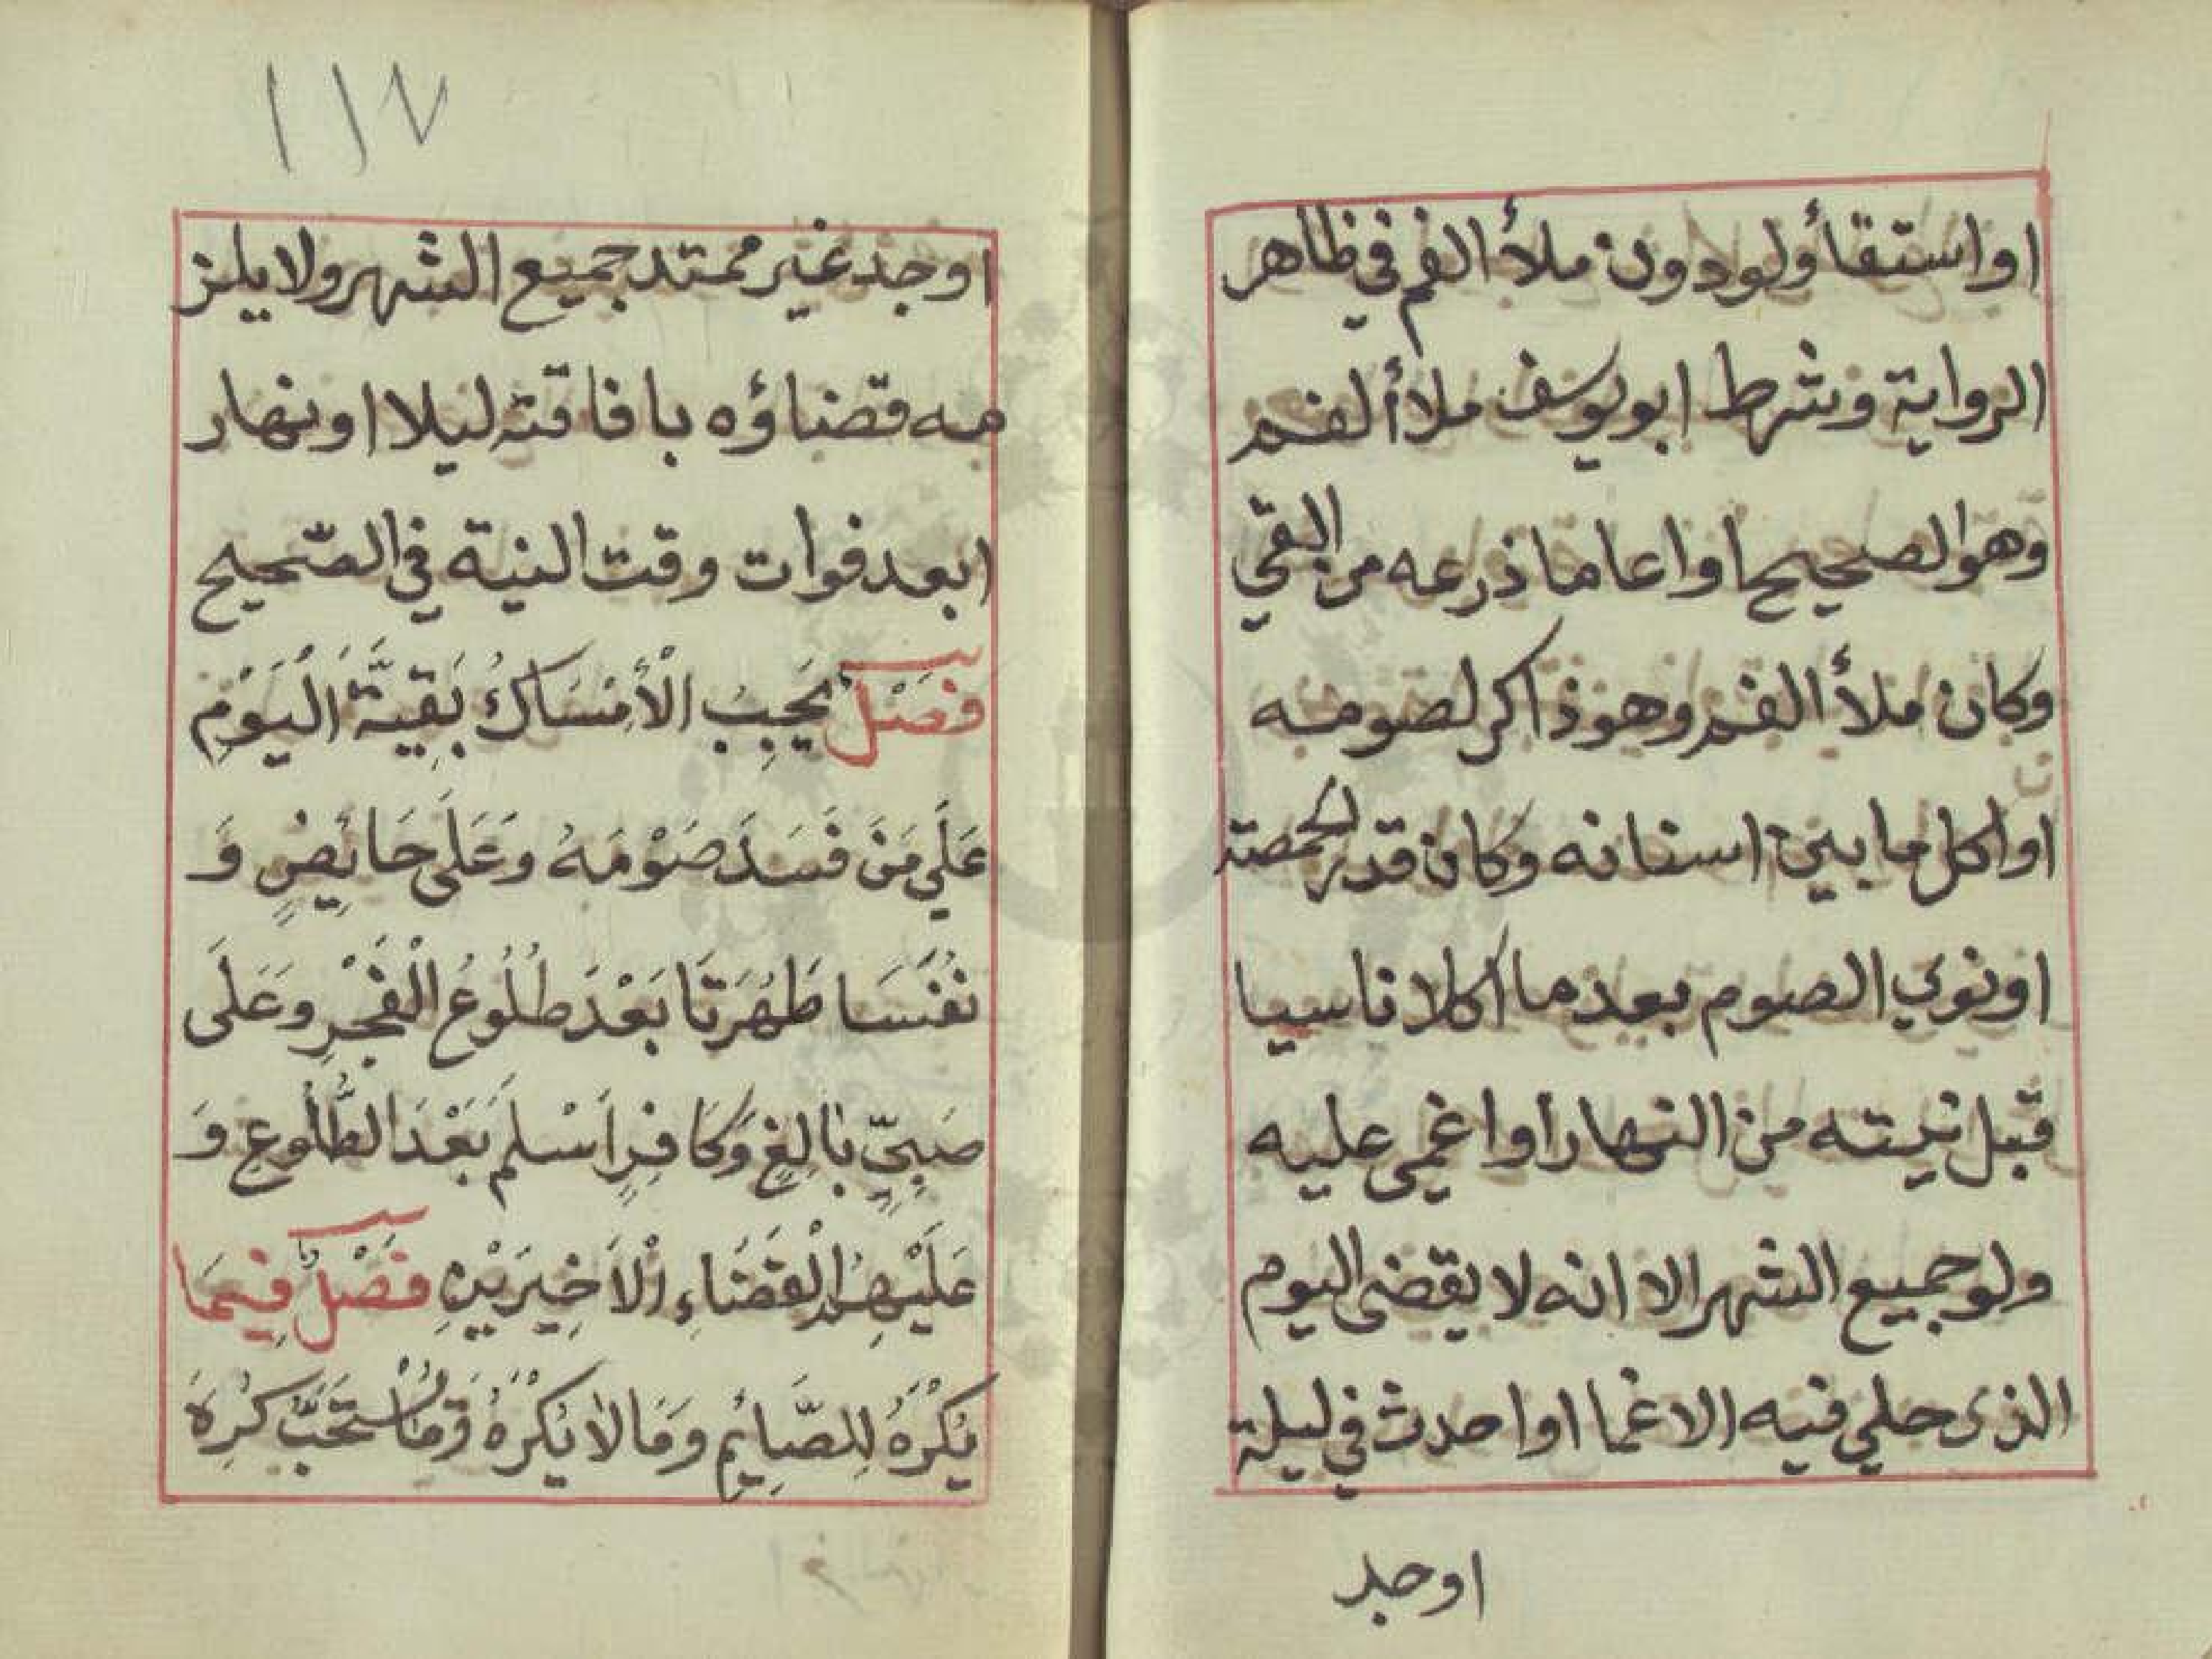 او استقأ ولو دون ملأ الفم في ظاهر
الرواية وشرط ابو يوسف ملأ الفم
وهو الصحيح او اعا ما ذرعه من القي
وكان ملأ الفم وهو ذاكر لصومه
او اكل ما بين اسنانه وكان قدر الحمصة
او نوي الصوم بعد ما اكلا ناسيا
قبل نيته من النهار او اغمى عليه
ولو جميع الشهر الا انه لا يقضى اليوم
الذى حلي فيه الاغما او احدث في ليلة
او جد
١١٧
او جد غير ممتد جميع الشهر ولا يلز
مه قضاؤه بافاقته ليلا او نهار
ا بعد فوات وقت النية في الصّحيح
فَصْلٌ يَجِبُ الْأمْسَاكُ بَقِيَّةَ الْيَوْمِ
عَلَي مَنَ فَسَدَ صَوْمَهُ وَعَلَى حَائِضٍ وَ
نُفَسَا طَهُرَتَا بَعْدَ طُلُوعُ الْفَجْرِ وَعَلَى
صَبِيٍّ بَالِغٍ وَكَافِرٍ اَسْلَمَ بَعْدَ الطُّلُوعِ وَ
عَلَيْهِمُ الْقَضَاءِ اْلاَخِيرَيْنِ فَصْلٌ فِيمَا
يُكْرَهُ لِلصَّائِمِ وَمَا لَا يُكْرَهُ وَمَا يُسْتَحَبُّ كُرِهَ